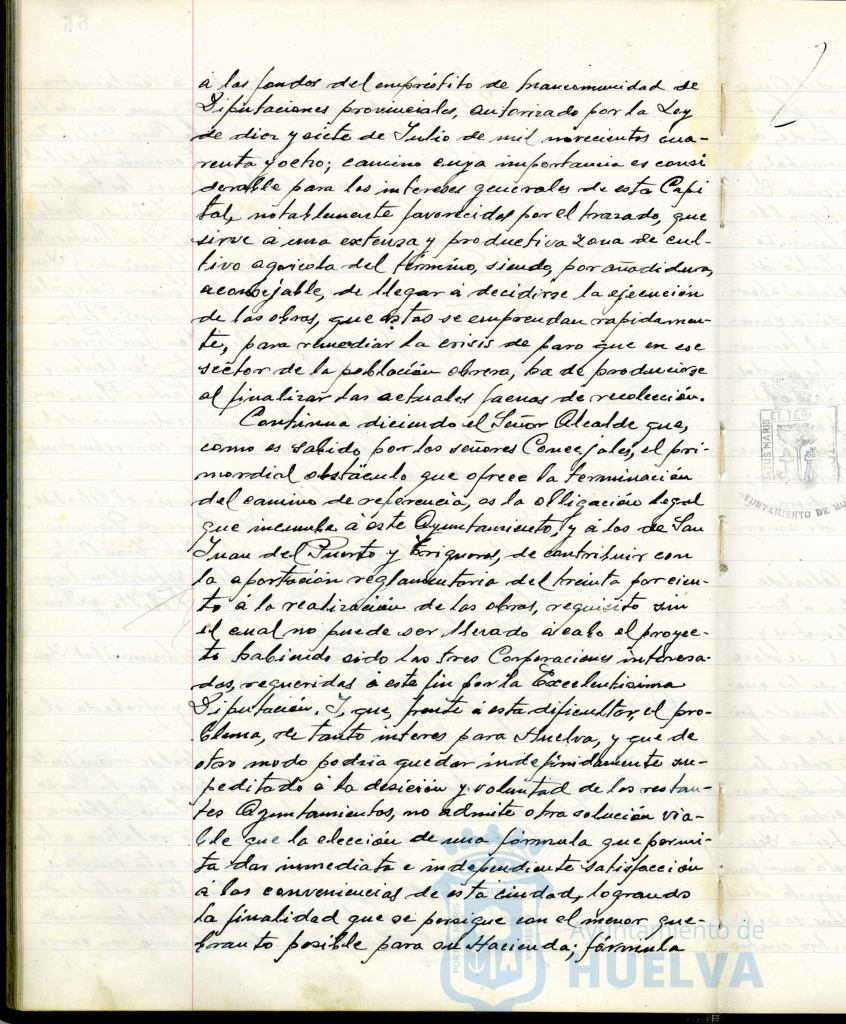 á los fondos del empréstito de mancomunidad de
Diputaciones provinciales, autorizado por la Ley
de diez y siete de Julio de mil novecientos cua-
renta y ocho; camino cuya importancia es consi
derable para los intereses generales de esta Capi
tal, notablemente favorecidos por el trazado, que
sirve á una extensa y productiva zona de cul-
tivo agricola del término, siendo, por añadidura,
aconsejable, de llegar á decidirse la ejecución
de las obras, que estas se emprendan rapidamen-
te, para remediar la crisis de paro que en ese
sector de la población obrera, ha de producirse
al finalizar las actuales faenas de recolección.
Continua diciendo el Señor Alcalde que,
como es sabido por los señores Concejales, el pri-
mordial obstáculo que ofrece la terminación
del camino de referencia, es la obligación legal
que incumbe á este Ayuntamiento, y á los de San
Juan del Puerto y Trigueros, de contribuir con
la aportación reglamentaria del treinta por cien-
to á la realización de las obras, requisito sin
el cual no puede ser llevado á cabo el proyec-
to habiendo sido las tres Corporaciones interesa-
das, requeridas á este fin por la Excelentisima
Diputación. Y, que, frente á esta dificultar, el pro-
blema, de tanto interes para Huelva, y que de
otro modo podria quedar indefinidamente su-
peditado á la desición y voluntad de los restan-
tes Ayuntamientos, no admite otra solución via-
ble que la elección de una fórmula que permi-
ta dar inmediata e independiente satisfacción
á las conveniencias de esta ciudad, logrando
la finalidad que se persigue con el menor que-
branto posible para su Hacienda; fórmula
Ayuntamiento de
HUELVA